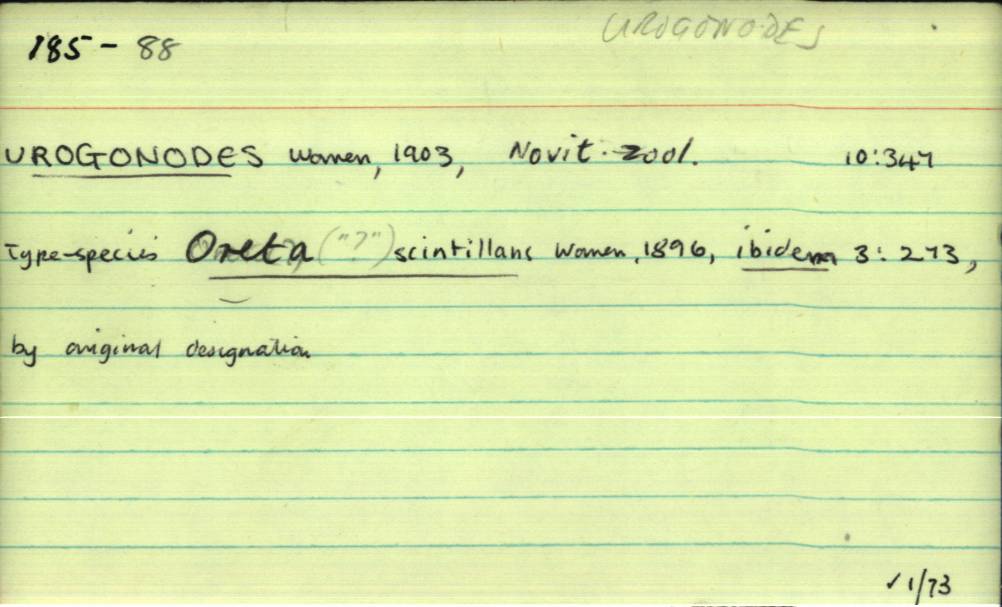 UROGONODES
185 - 88
UROGONODES Warren, 1903, Novit. zool. 10:347
Type-species Oreta ("?") scintillans Warren, 1896, ibidem 3: 273,
by original designation
✓ 1/73